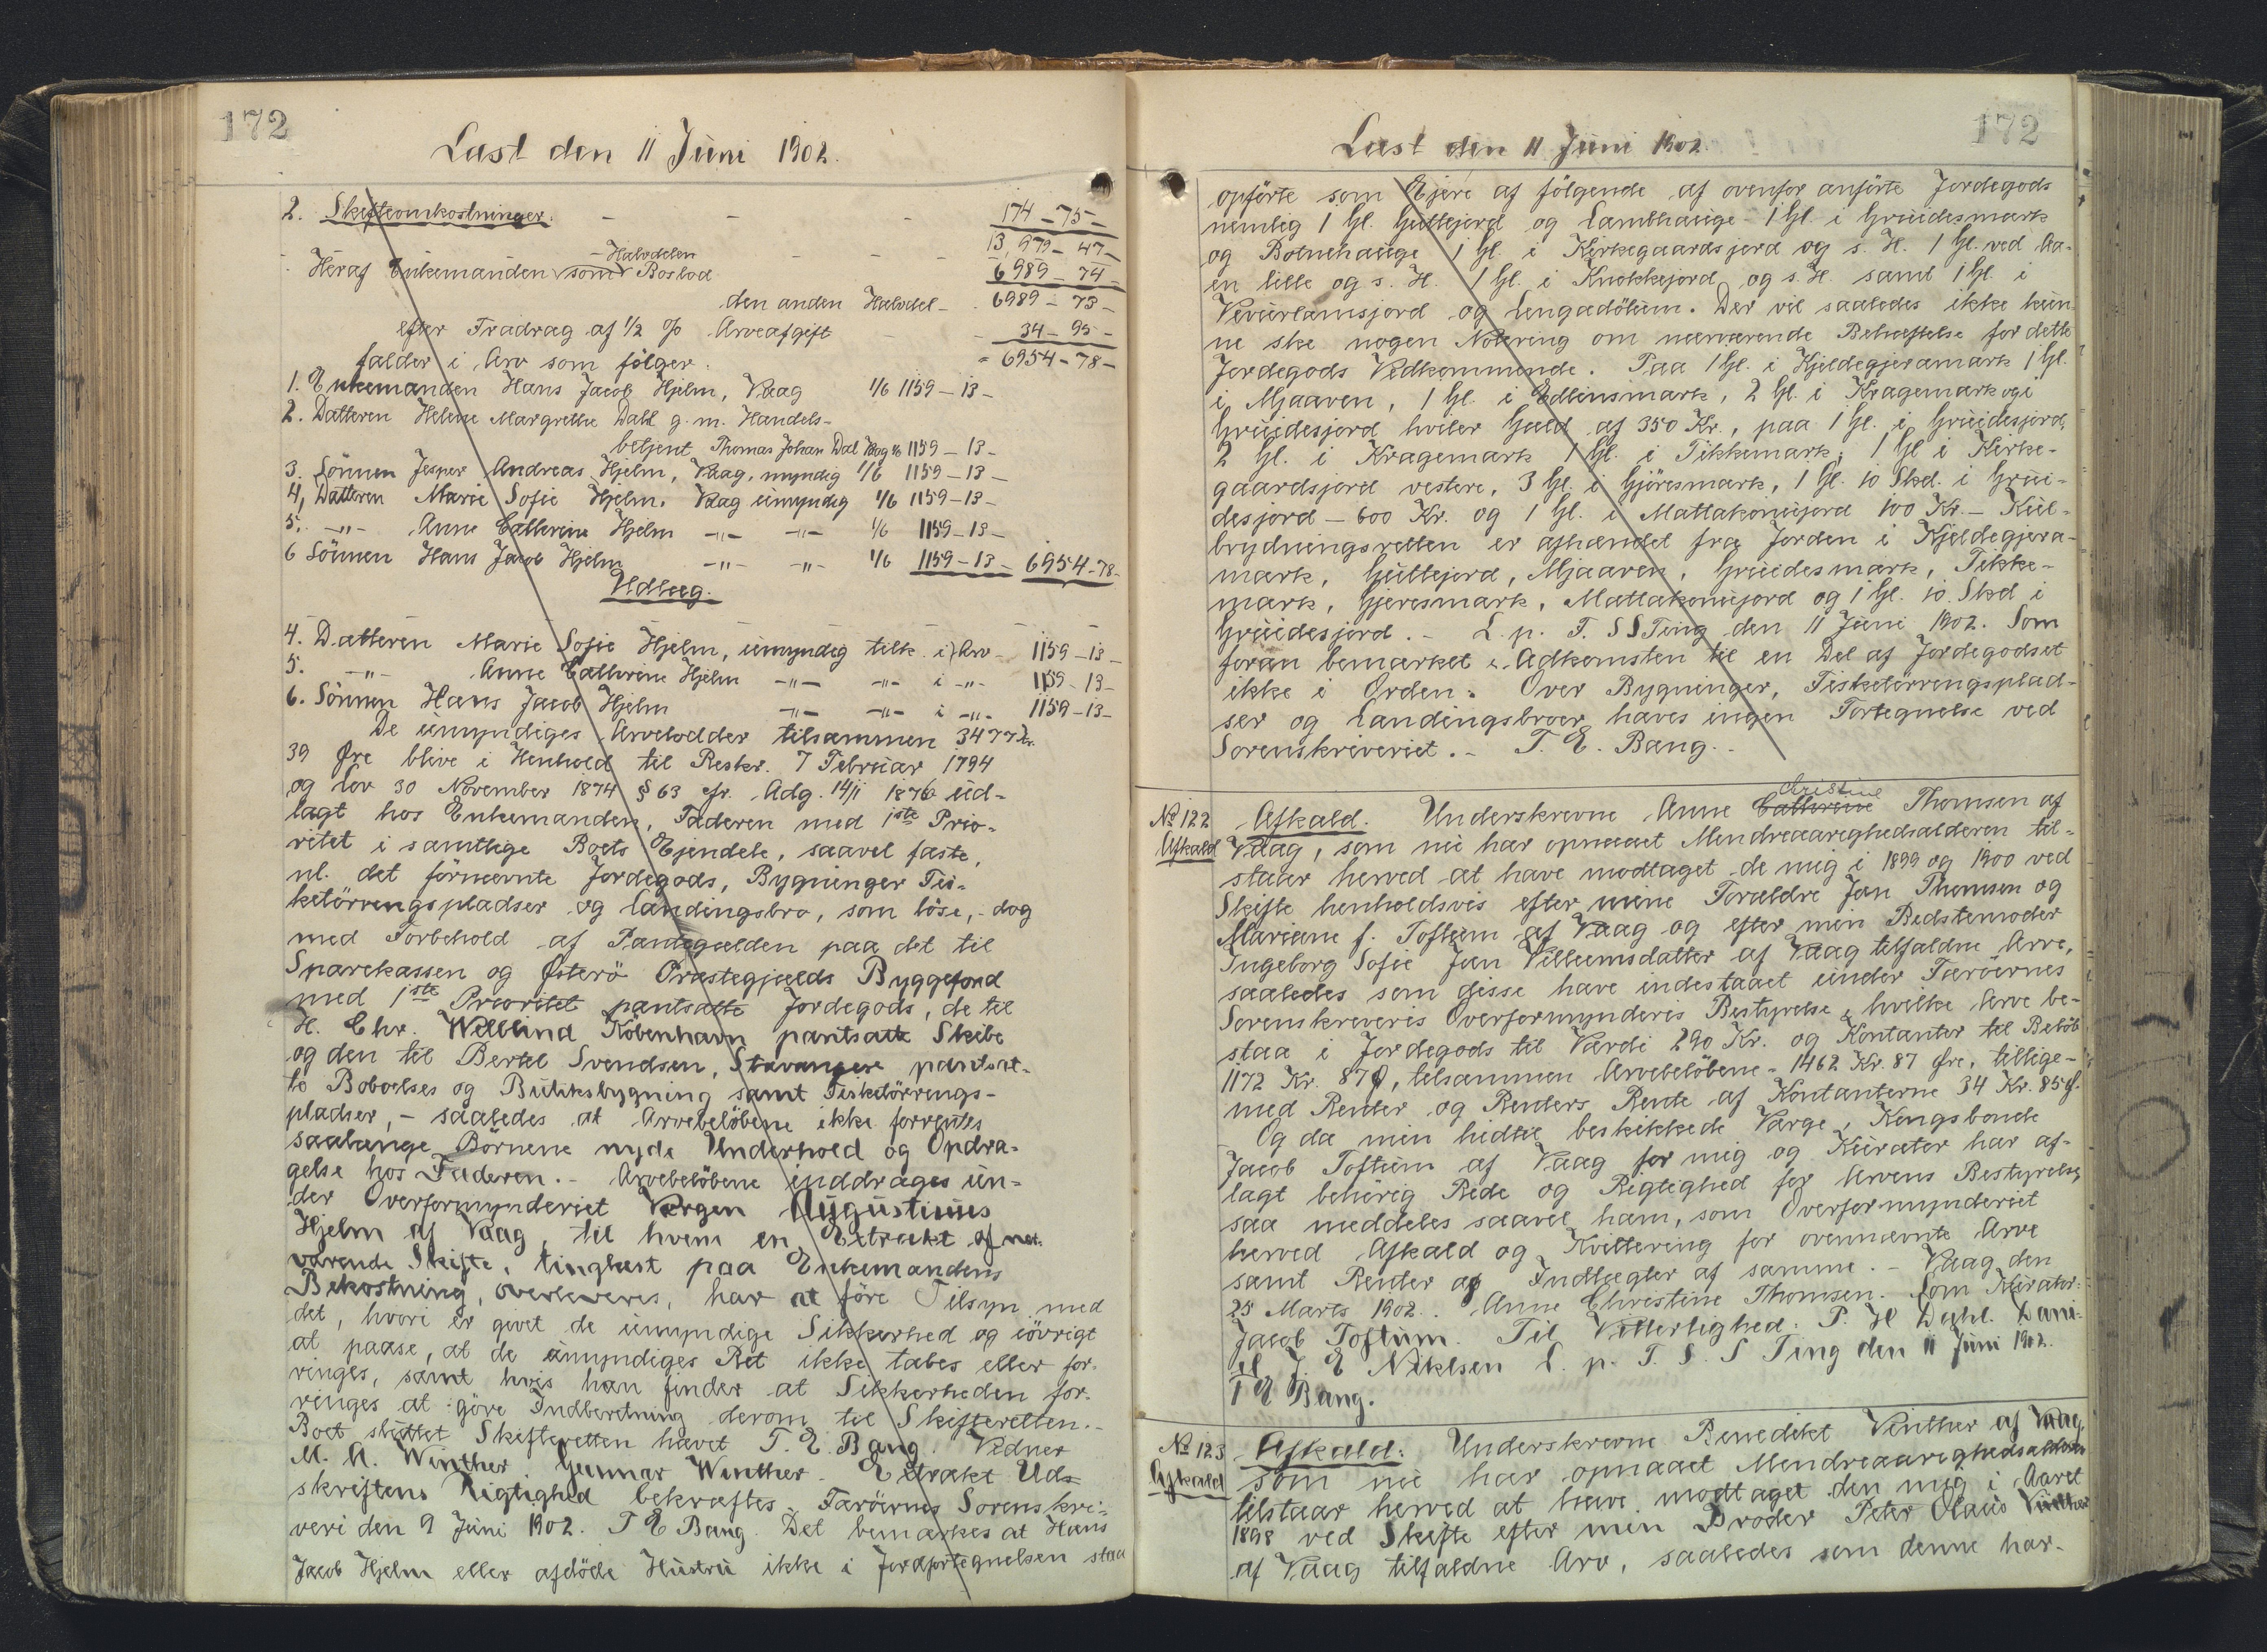 172
Læst den 11 Juni 1902.
2. Skifteomkostninger. - - - 174-75-
13,979-47-
- Halvdelen
Heraf Enkemanden som Boslod - - - 6989-74-
den anden Halvdel - 6989-73-
efter Fradrag af 1/2 % Arveafgift - - 34-95-
falder i Arv som følger. = 6954-78-
1. Enkemanden Hans Jacob Hjelm, Vaag 1/6 1159-13-
2. Datteren Helene Margrethe Dahl g. m. Handels-
betjent Thomas Johan Dal Vaag 1/6 1159-13-
3. Sönnen Jesper Andreas Hjelm, Vaag, myndig 1/6 1159-13-
4, Datteren Marie Sofie Hjelm, Vaag umyndig 1/6 1159-13-
5. -"- Anne Cathrine Hjelm -"- -"- 1/6 1159-13-
6 Sönnen Hans Jacob Hjelm -"- -"- 1/6 1159-13- 6954-78-
Udlæg.
4. Datteren Marie Sofie Hjelm, umyndig tilk. i Arv - 1159-13-
5. -"- Anne Cathrine Hjelm -"- -"- i -"- 1159-13-
6. Sönnen Hans Jacob Hjelm -"- -"- i -"- 1159-13-
De umyndiges Arvelodder tilsammen 3477 Kr.
39 Øre blive i Henhold til Reskr. 7 Februar 1794
og Lov 30 November 1874 § 63 cfr. Adg. 14/11 1876 ud-
lagt hos Enkemanden, Faderen med 1ste Prio-
ritet i samtlige Boets Ejendele, saavel faste,
nl. det förnævnte Jordegods, Bygninger Fis-
ketörringspladser og Landingsbro, som löse, - dog
med Forbehold af Pantegælden paa det til
Sparekassen og Østerö Præstegjælds Byggefond
med 1ste Prioritet pantsatte Jordegods, de til
H. Chr. Köbenhavn pantsatte Skibe
og den til Bertel Svendsen, Stavanger pantsat-
te Boboelses og Butiksbygning samt Fisketörrings-
pladser, - saaledes at Arvebelöbene ikke forrentes
saalænge Börnene nyde Underhold og Opdra-
gelse hos Faderen. - Arvebelöbene inddrages un-
der Overformynderiet Værgen Augustinus
Hjelm af Vaag, til hvem en Extrakt af nær-
værende Skifte, tinglæst paa Enkemandens
Bekostning, overleveres, har at före Tilsyn med
det, hvori er givet de umyndige Sikkerhed og iövrigt
at paase, at de umyndiges Ret ikke tabes eller for-
ringes, samt hvis han finder at Sikkerheden for-
ringes at göre Indberetning derom til Skifteretten. -
Boet sluttet Skifteretten hævet T. E. Bang. Vidner
M. A. Winther. Gunnar Winther. Extrakt Ud-
skriftens Rigtighed bekræftes. Færöernes Sorenskri-
veri den 9 Juni 1902. T E Bang. Det bemærkes at Hans
Jacob Hjelm eller afdöde Hustru ikke i Jordfortegnelsen staa
172
Læst den 11 Juni 1902
opförte som Ejere af fölgende af ovenfor anförte Jordegods
nemlig 1 Gl. Guttejord og Lambhauge - 1 Gl. i Gruidesmark
og Botnehauge 1 Gl. i Kirkegaardsjord og s. H. 1 Gl. ved Aa-
en lille og s. H. 1 Gl. i Knokkejord og s. H. samt 1 Gl. i
Veverlamsjord og Lengadölum. Der vil saaledes ikke kun-
ne ske nogen Notering om nærværende Behæftelse for dette
Jordegods Vedkommende. Paa 1 Gl. i Kjeldegjeramark 1 Gl.
i Mjaaven, 1 Gl. i Edlinsmark, 2 Gl. i Kragemark og i
Gruidesjord hviler Gæld af 350 Kr., paa 1 Gl. i Gruidesjord,
2 Gl. i Kragemark 1 Gl. i Tikkemark, 1 Gl i Kirke-
gaardsjord vestere, 3 Gl. i Gjöresmark, 1 Gl. 10 Skd. i Grui-
desjord - 600 Kr. og 1 Gl. i Mattakonujord 100 Kr. - Kul-
brydningsretten er afhændet fra Jorden i Kjeldegjera-
mark, Guttejord, Mjaaven, Gruidesmark, Tikke-
mark, Gjeresmark, Mattakonujord og 1 Gl. 10. Skd i
Gruidesjord. - L. p. T. S S Ting den 11 Juni 1902. Som
foran bemærket er Adkomsten til en Del af Jordegodset
ikke i Orden. Over Bygninger, Fisketörringsplad-
ser og Landingsbroer haves ingen Fortegnelse ved
Sorenskriveriet. - T. E. Bang. -
Christine
No 122 Afkald. Underskrevne Anne Cathrine Thomsen af
Afkald Vaag, som nu har opnaaet Mendreaarighedsalderen til-
staaer herved at have modtaget de mig i 1899 og 1900 ved
Skifte henholdsvis efter mine Forældre Jan Thomsen og
Mariane f. Toftum af Vaag og efter min Bedstemoder
Ingeborg Sofie Jan Villumsdatter af Vaag tilfaldne Arve,
saaledes som disse have indestaaet under Færöernes
Sorenskriveris Overformynderis Bestyrelse, hvilke Arve be-
staa i Jordegods til Værdi 290 Kr. og Kontanter til Belöb
1172 Kr. 87 Ø, tilsammen Arvebelöbene - 1462 Kr. 87 Øre, tillige-
med Renter og Renters Rente af Kontanterne 34 Kr. 85 Ø.
Og da min hidtil beskikkede Værge, Kongsbonde
Jacob Toftum af Vaag for mig og Kurator har af-
lagt behörig Rede og Rigtighed for Arvens Bestyrelse,
saa meddeles saavel ham, som Overformynderiet
herved Afkald og Kvittering for ovennævnte Arve
samt Renter og Indtægter af samme. - Vaag den
25 Marts 1902. Anne Christine Thomsen. Som Kurator:
Jacob Toftum. Til Vitterlighed: P. H Dahl. Dani-
el J. E Niklsen L. p. T. S. S Ting den 11 Juni 1902.
T E Bang.
No 123 Afkald: Underskrevne Benedikt Vinther af Vaag,
Afkald som nu har opnaaet Mendreaarighedsalderen
tilstaar herved at have modtaget den mig i Aaret
1898 ved Skifte efter min Broder Peter Olaus Vinther
af Vaag tilfaldne Arv, saaledes som denne har-